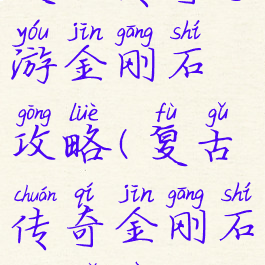 yóu jīn gāng shí
游金刚石
gōng lüè fù gǔ
攻略(复古
chuán qí jīn gāng shí
传奇金刚石